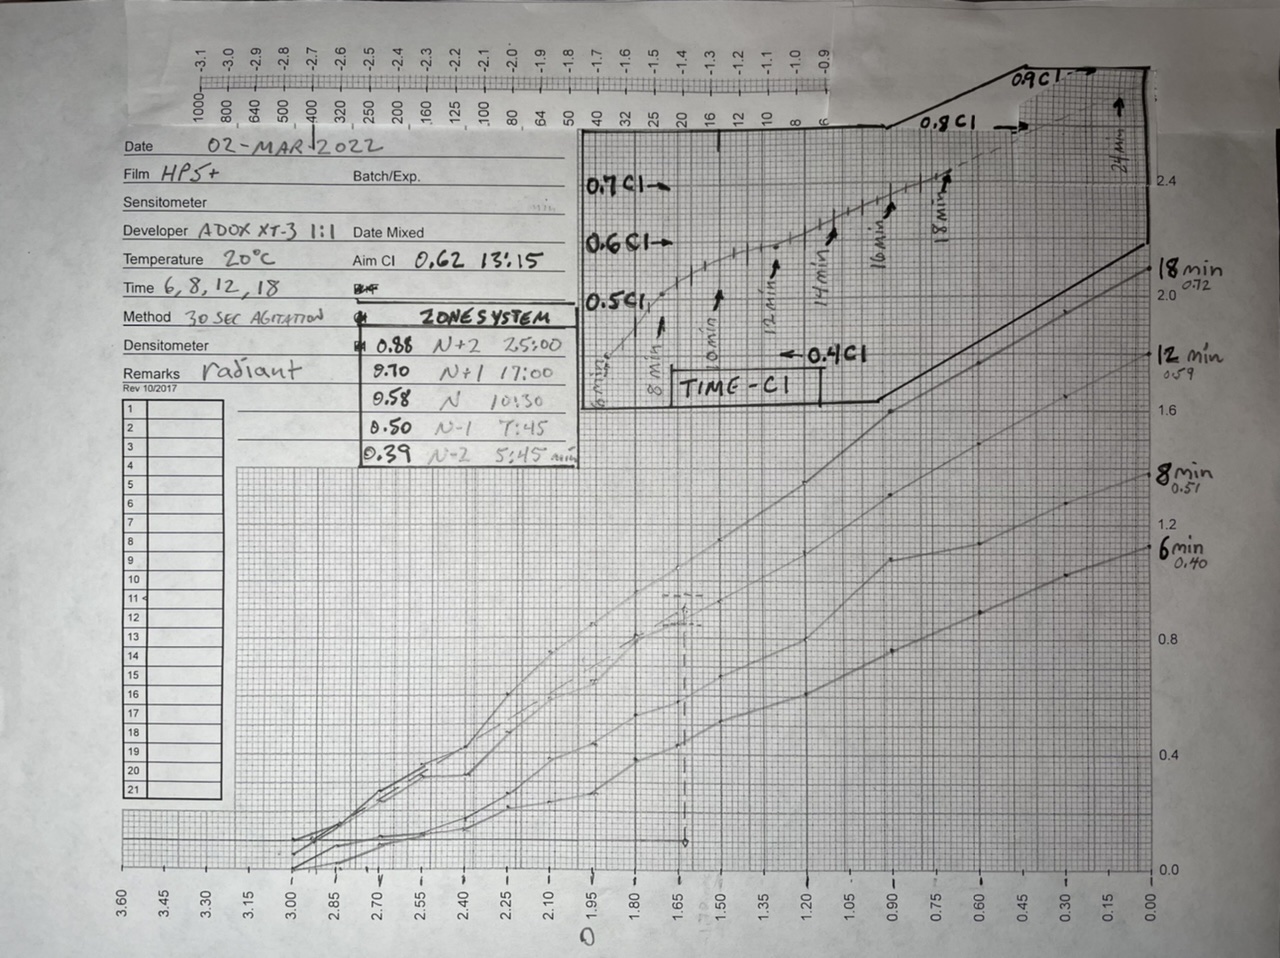 -3.1 -3.0 -2.9 -2.8 -2.7 -2.6 -2.5 -2.4 -2.3 -2.2 -2.1 -2.0 -1.9 -1.8 -1.7 -1.6 -1.5 -1.4 -1.3 -1.2 -1.1 -1.0 -0.9
1000 800 640 500 400 320 250 200 160 125 100 80 64 50 40 32 25 20 16 12 10 8 6
Date 02-MAR 2022
Film HP5+ Batch/Exp.
Sensitometer
Developer ADOX XT-3 1:1 Date Mixed
Temperature 20°C Aim CI 0.62 13:15
Time 6, 8, 12, 18
Method 30 SEC AGITATION
Densitometer
Remarks radiant
Rev 10/2017
ZONE SYSTEM
0.88 N+2 25:00
0.70 N+1 17:00
0.58 N 10:30
0.50 N-1 7:45
0.39 N-2 5:45 min
0.9 CI
0.8 CI
0.7 CI
0.6 CI
0.5 CI
0.4 CI
6 min
8 min
10 min
12 min
14 min
16 min
18 min
24 min
TIME - CI
1
2
3
4
5
6
7
8
9
10
11
12
13
14
15
16
17
18
19
20
21
2.4
18 min
0.72
2.0
12 min
0.59
1.6
8 min
0.51
1.2
6 min
0.40
0.8
0.4
0.0
3.60 3.45 3.30 3.15 3.00 2.85 2.70 2.55 2.40 2.25 2.10 1.95 1.80 1.65 1.50 1.35 1.20 1.05 0.90 0.75 0.60 0.45 0.30 0.15 0.00
0